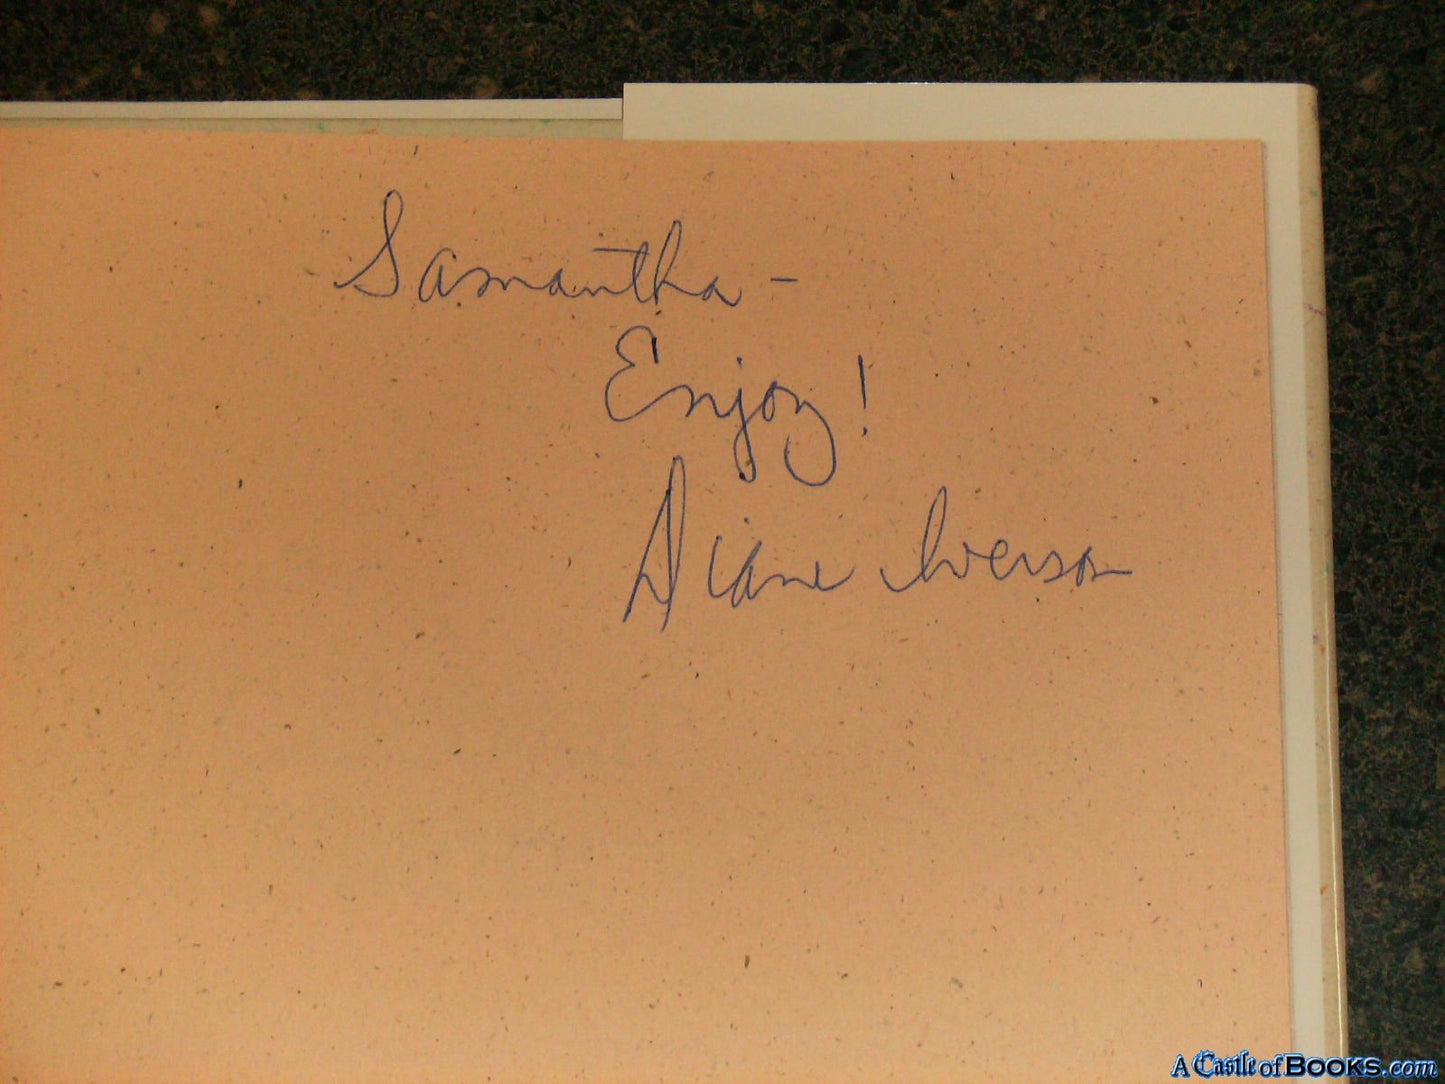 Samantha -
Enjoy!
Diane Iverson
A Castle of BOOKS.com